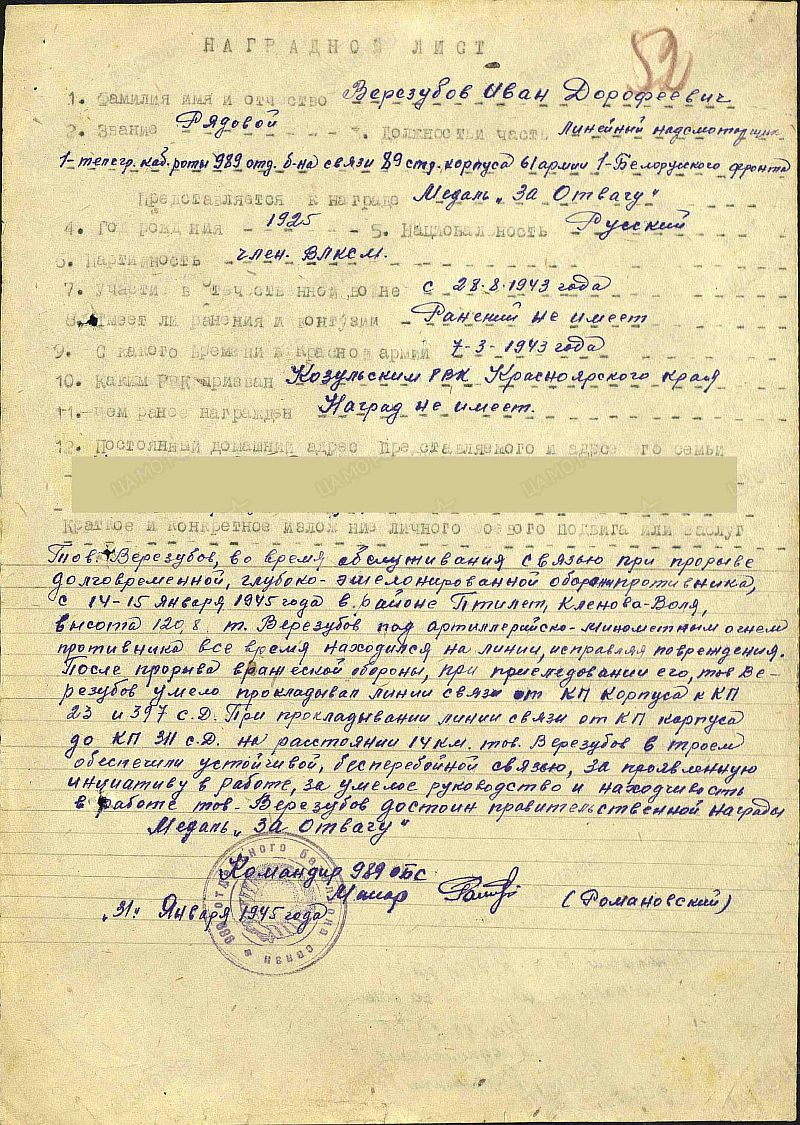 НАГРАДНОЙ ЛИСТ
52
1. Фамилия имя и отчество Верезубов Иван Дорофеевич
2. Звание Рядовой 3. Должность и часть линейный надсмотрщик
1-телегр. каб. роты 989 отд. б-на связи 89 стр. корпуса 61 армии 1-Белорусского фронта
Представляется к награде Медаль „За Отвагу"
4. Год рождения 1925 5. Национальность Русский
6. Партийность член. ВЛКСМ.
7. Участие в отечественной войне с 28.8.1943 года
8. Имеет ли ранения и контузии Ранений не имеет
9. С какого времени в Красной армии 7-3-1943 года
10. Каким РВК призван Козульским РВК Красноярского края
11. Чем ранее награжден Наград не имеет.
12. Постоянный домашний адрес представляемого и адрес его семьи
Краткое и конкретное изложение личного боевого подвига или заслуг
Тов. Верезубов, во время обслуживания связью при прорыве
долговременной, глубоко-эшелонированной оборон противника,
с 14-15 января 1945 года в районе Птилет, Кленова-Воля,
высота 120,8 т. Верезубов под артиллерийско-минометным огнем
противника все время находился на линии, исправляя повреждения.
После прорыва вражеской обороны, при приследовании его, тов Ве-
резубов умело прокладывал линии связи от КП Корпуса к КП
23 и 397 с.Д. При прокладывании линии связи от КП карпуса
до КП 311 с.Д. на расстоянии 14 км. тов. Верезубов в троем
обеспечили устойчивой, бесперебойной связью, За проявленную
инициативу в работе, за умелое руководство и находчивость
в работе тов. Верезубов достоин правительственной награды
Медаль „За Отвагу"
Командир 989 ОБС
Маиор (Романовский)
„31" Января 1945 года
989 отдельного батальона связи